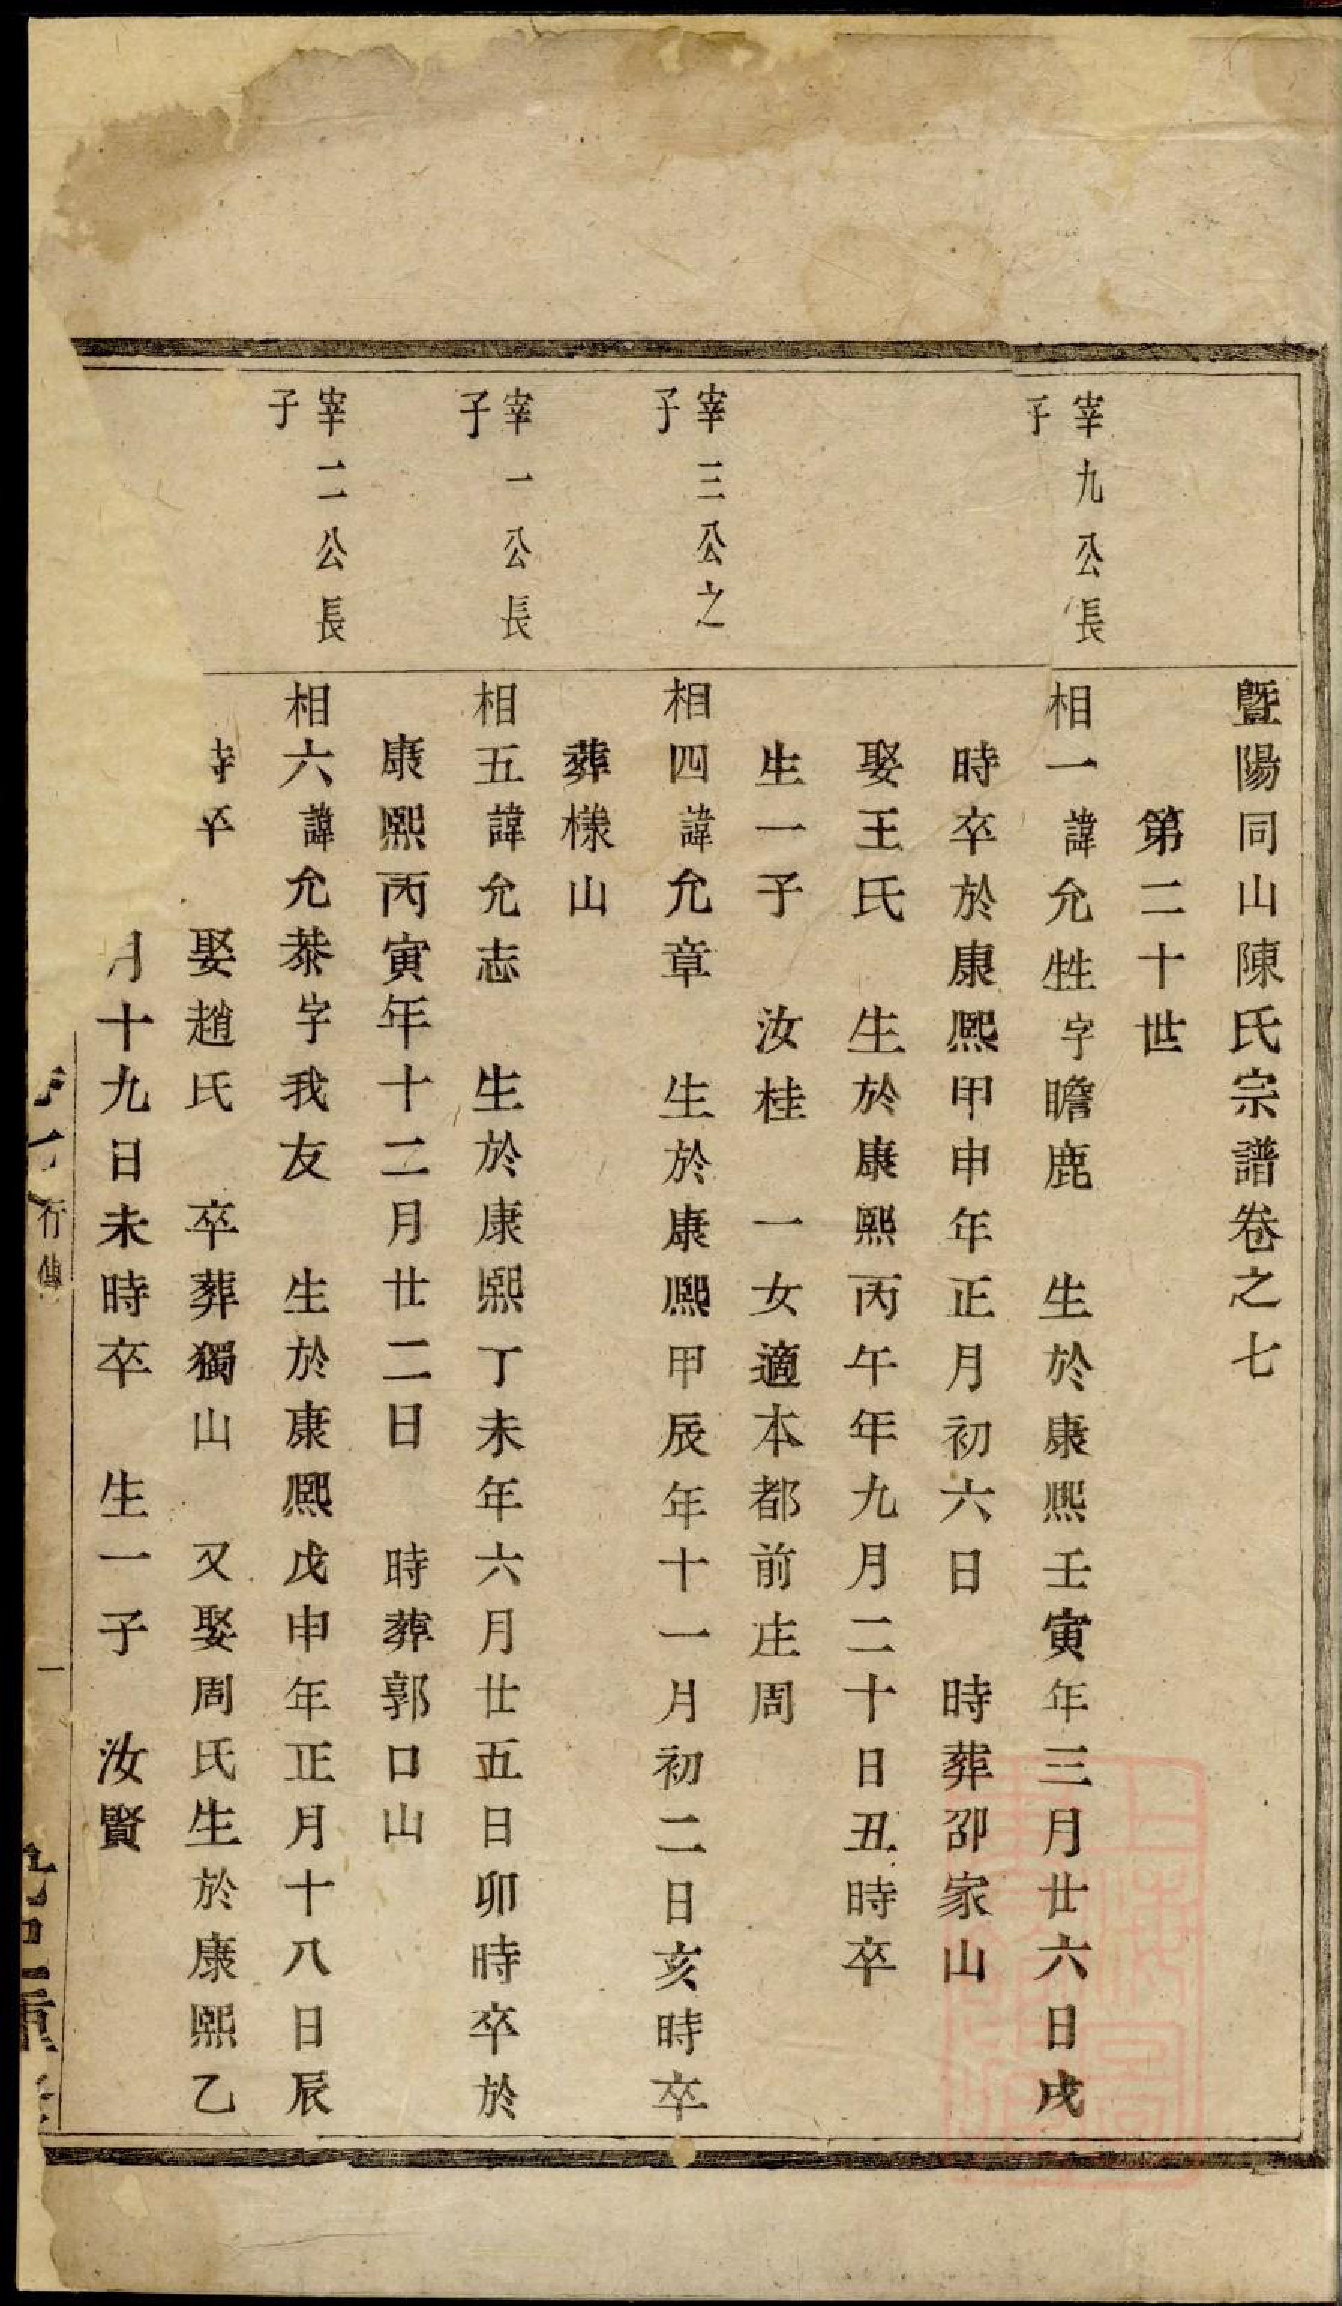 暨陽同山陳氏宗譜卷之七
第二十世
宰九公長
子
相一諱允甡字瞻鹿　生於康熙壬寅年三月廿六日戌
時卒於康熙甲申年正月初六日　時葬邵家山
娶王氏　生於康熙丙午年九月二十日丑時卒
生一子　汝桂　一女適本都前庄周
宰三公之
子
相四諱允章　生於康熙甲辰年十一月初二日亥時卒
葬樣山
宰一公長
子
相五諱允志　生於康熙丁未年六月廿五日卯時卒於
康熙丙寅年十二月廿二日　時葬郭口山
宰二公長
子
相六諱允恭字我友　生於康熙戊申年正月十八日辰
時卒　娶趙氏　卒葬獨山　又娶周氏生於康熙乙
月十九日未時卒　生一子　汝賢
行傳
一